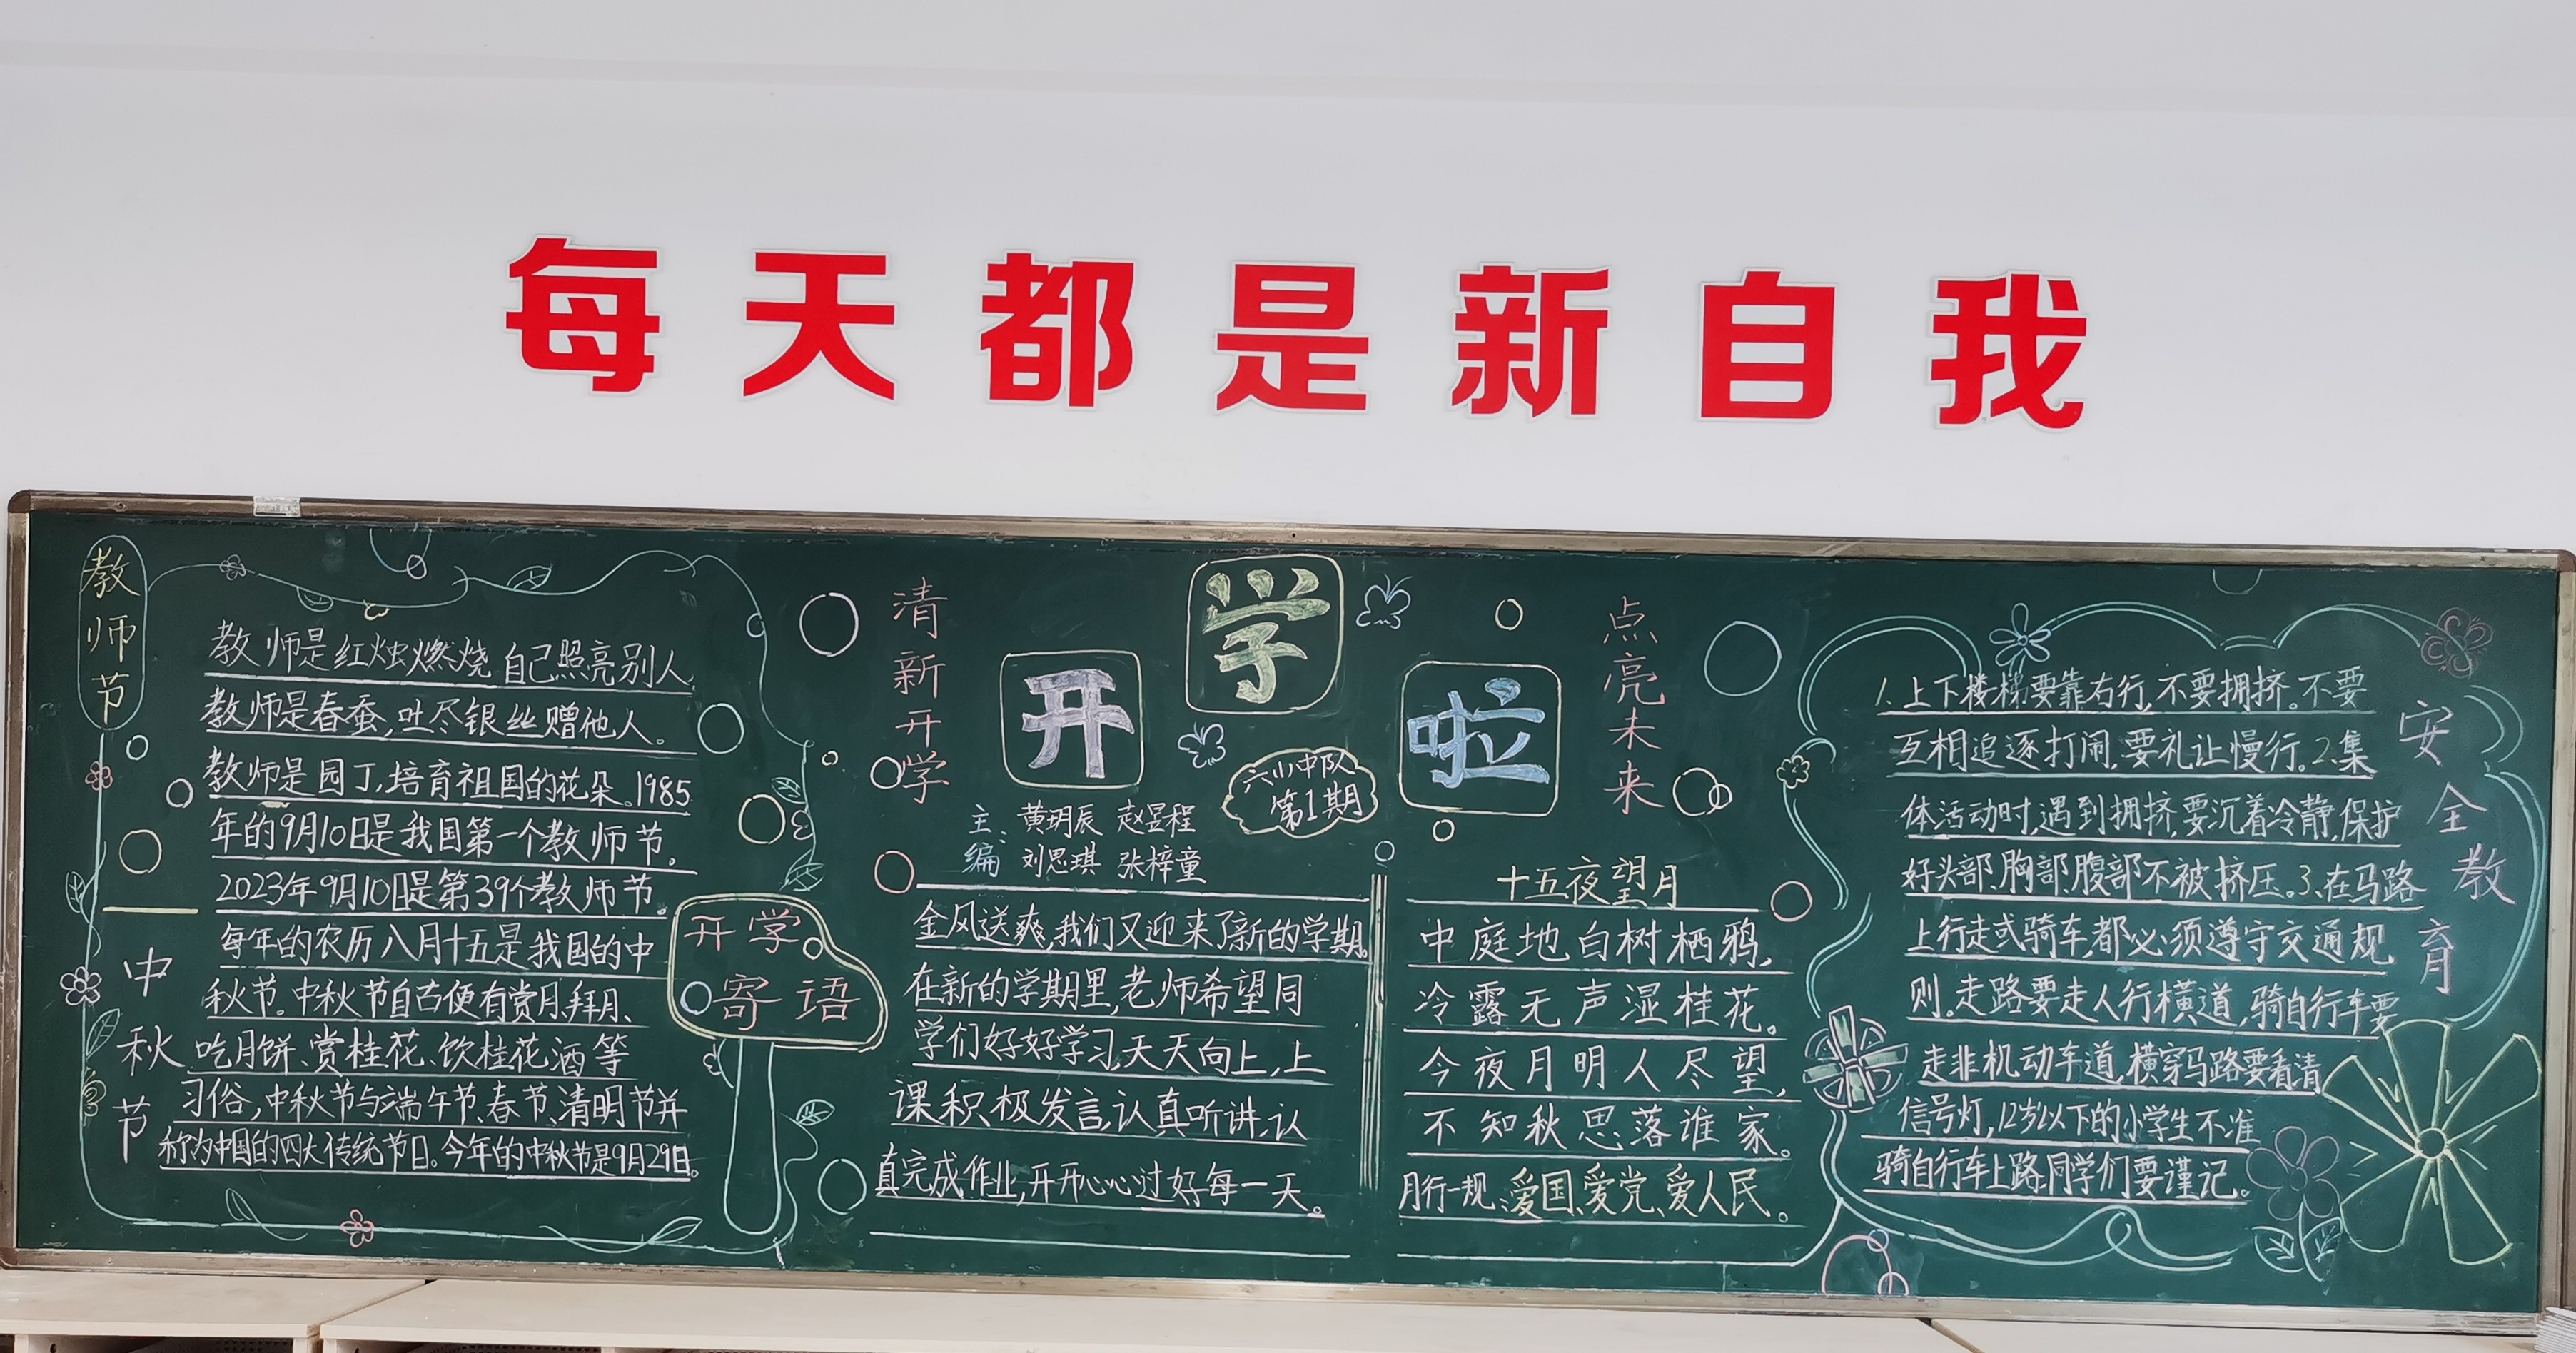 每天都是新自我
教师节
教师是红烛燃烧自己照亮别人,
教师是春蚕,吐尽银丝赠他人。
教师是园丁,培育祖国的花朵。1985
年的9月10日是我国第一个教师节。
2023年9月10日是第39个教师节。
中秋节
每年的农历八月十五是我国的中
秋节。中秋节自古便有赏月、拜月、
吃月饼、赏桂花、饮桂花酒等
习俗,中秋节与端午节、春节、清明节并
称为中国的四大传统节日。今年的中秋节是9月29日。
开学
寄语
清新开学
开学啦
点亮未来
六(1)中队
第1期
主编:
黄玥辰 赵昱程
刘思琪 张梓童
金风送爽,我们又迎来了新的学期。
在新的学期里,老师希望同
学们好好学习,天天向上,上
课积极发言,认真听讲,认
真完成作业,开开心心过好每一天。
十五夜望月
中庭地白树栖鸦,
冷露无声湿桂花。
今夜月明人尽望,
不知秋思落谁家。
月行一规:爱国、爱党、爱人民。
安全教育
1.上下楼梯要靠右行,不要拥挤。不要
互相追逐打闹,要礼让慢行。2.集
体活动时,遇到拥挤,要沉着冷静,保护
好头部、胸部、腹部不被挤压。3.在马路
上行走或骑车,都必须遵守交通规
则。走路要走人行横道,骑自行车要
走非机动车道,横穿马路要看清
信号灯,12岁以下的小学生不准
骑自行车上路,同学们要谨记。